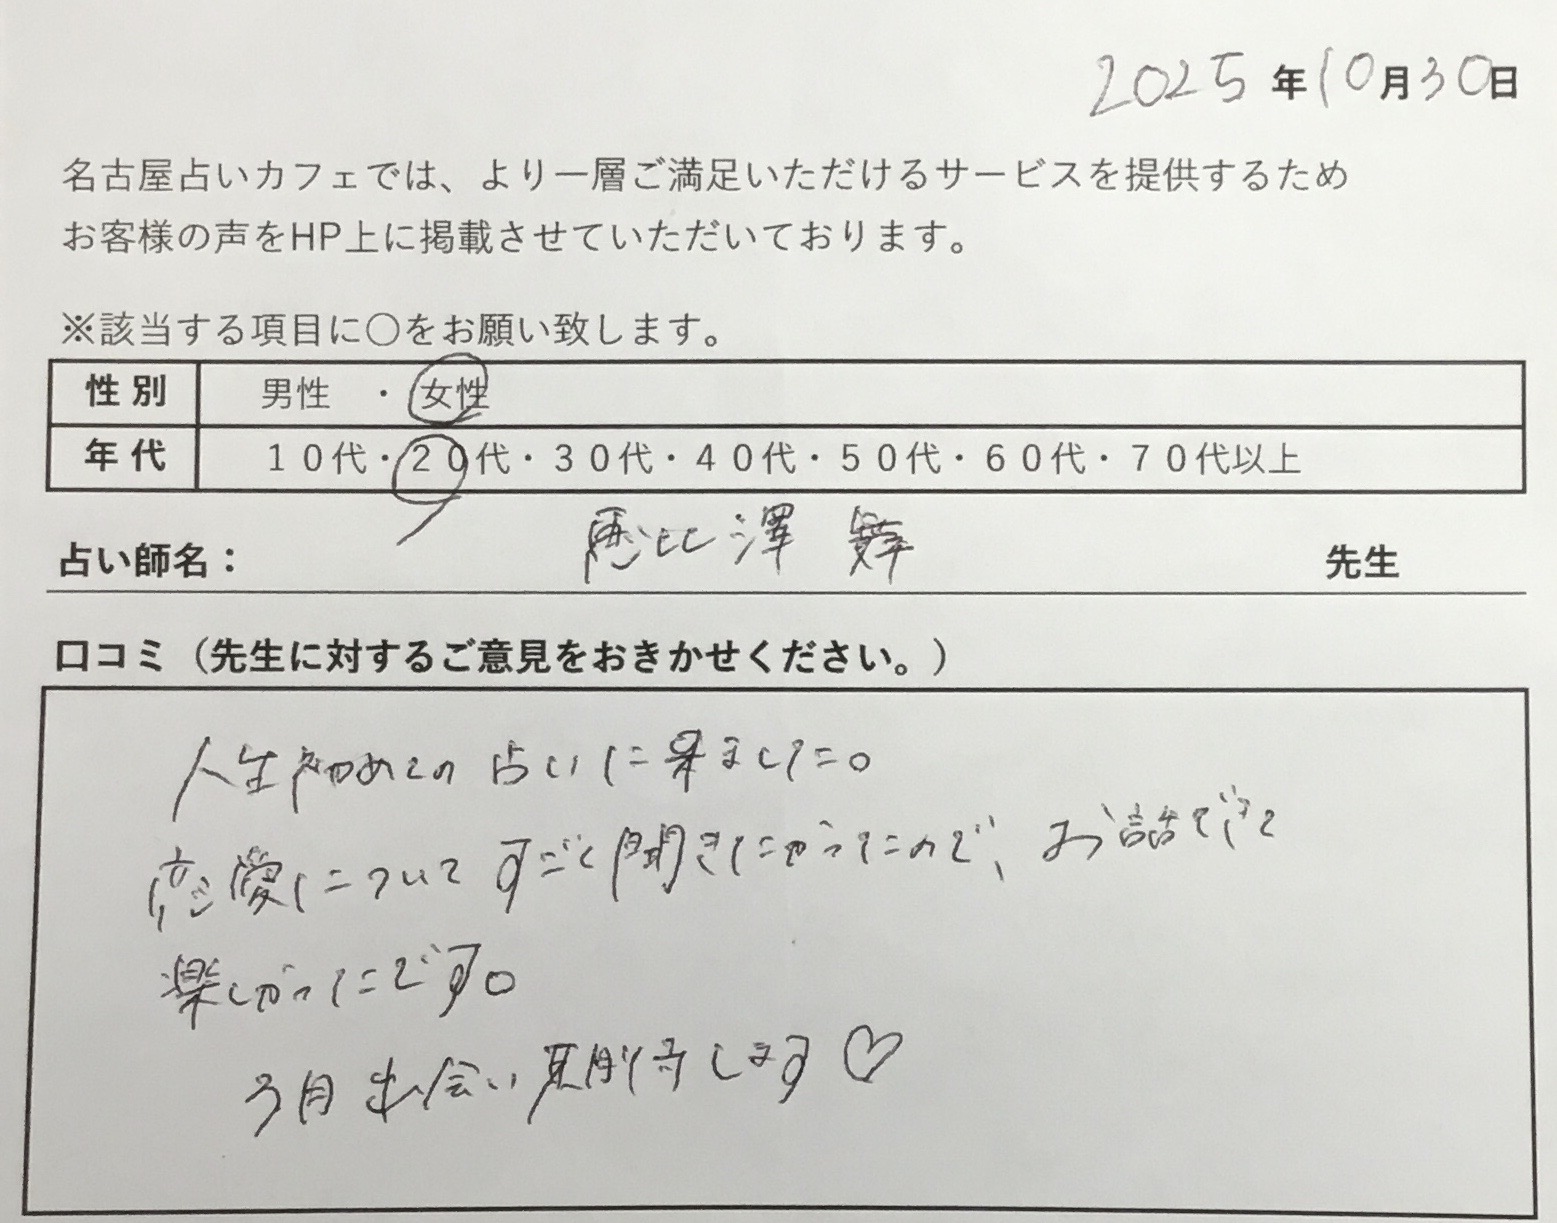 2025年10月30日
名古屋占いカフェでは、より一層ご満足いただけるサービスを提供するため
お客様の声をHP上に掲載させていただいております。
※該当する項目に〇をお願い致します。
性別 男性 ・ 女性
年代 １０代・２０代・３０代・４０代・５０代・６０代・７０代以上
占い師名： 恵比澤 舞 先生
口コミ（先生に対するご意見をおきかせください。）
人生初めての占いに来ました。
恋愛についてすごく聞きたかったので、お話できて
楽しかったです。
3月出会い期待します♡